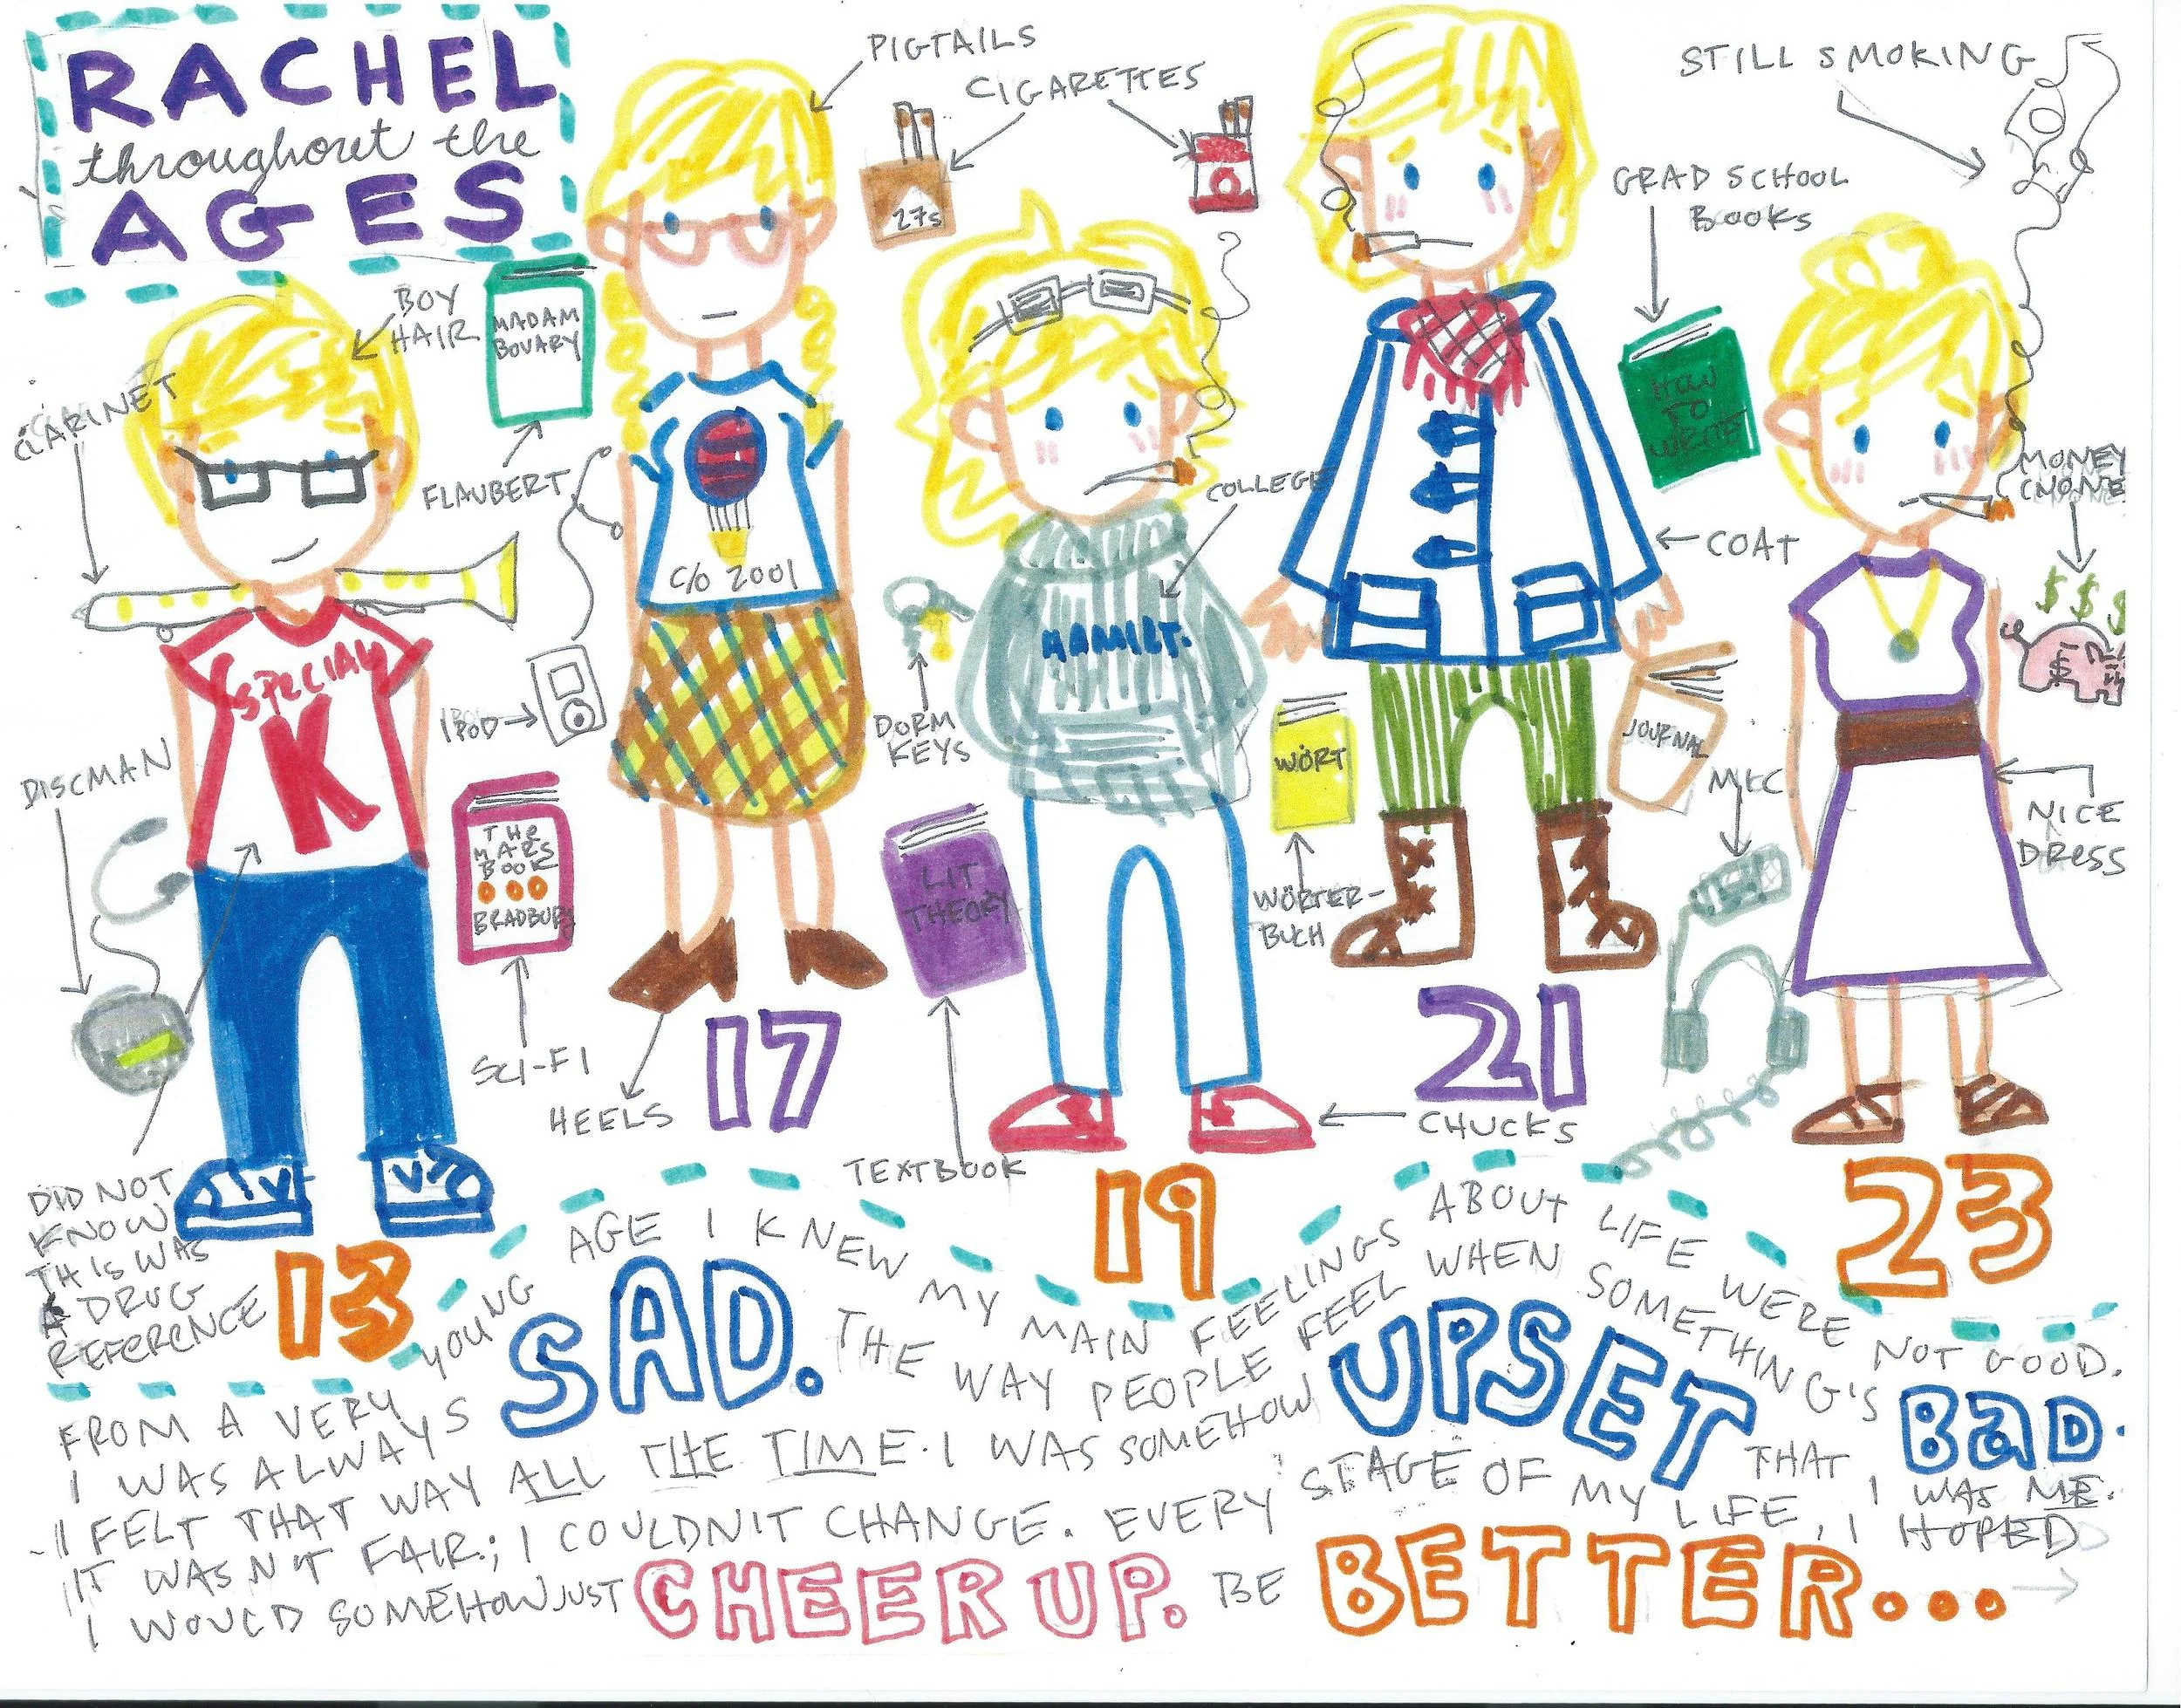 RACHEL
throughout the
AGES
BOY
HAIR
CLARINET
SPECIAL
K
DISCMAN
DID NOT
KNOW
THIS WAS
A DRUG
REFERENCE
13
MADAM
BOVARY
FLAUBERT
PIGTAILS
C/O 2001
IPOD
THE
MARS
BOOK
BRADBURY
SCI-FI
HEELS
17
CIGARETTES
27s
COLLEGE
DORM
KEYS
LIT
THEORY
TEXTBOOK
CHUCKS
19
GRAD SCHOOL
BOOKS
HOW
TO
WRITE
COAT
WÖRT
WÖRTER-
BUCH
JOURNAL
21
STILL SMOKING
MONEY
$ $ $
$
NICE
DRESS
23
FROM A VERY YOUNG AGE I KNEW MY MAIN FEELINGS ABOUT LIFE WERE NOT GOOD.
I WAS ALWAYS SAD. THE WAY PEOPLE FEEL WHEN SOMETHING'S BAD.
I FELT THAT WAY ALL THE TIME. I WAS SOMEHOW UPSET THAT I WAS ME.
IT WASN'T FAIR; I COULDN'T CHANGE. EVERY STAGE OF MY LIFE, I HOPED
I WOULD SOMEHOW JUST CHEER UP. BE BETTER...